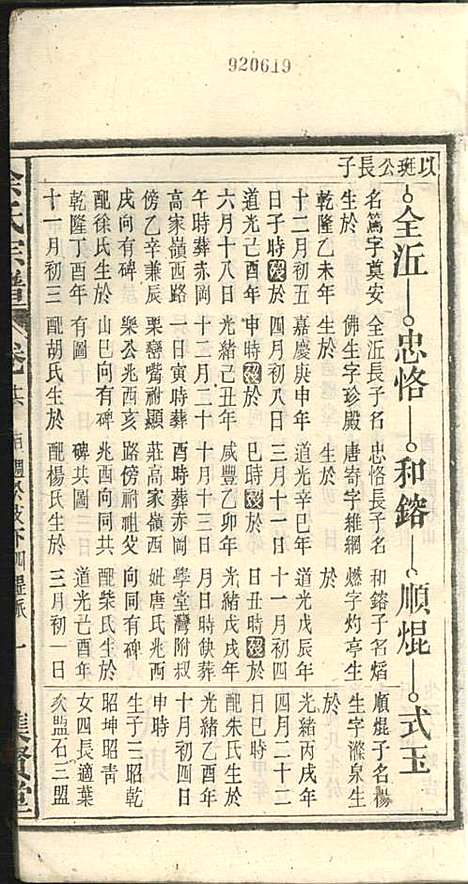 920619
以珷公長子
全㳂 忠恪 和鎔 順焜 式玉
名篤字奠安
生於
乾隆乙未年
十二月初五
日子時歿於
道光己酉年
六月十八日
午時葬赤岡
高家嶺西路
傍乙辛兼辰
戌向有碑
配徐氏生於
乾隆丁酉年
十一月初三
全㳂長子名
佛生字珍殿
生於
嘉慶庚申年
四月初八日
申時歿於
光緒己丑年
十二月三十
一日寅時葬
栗巒嘴祔顯
樂公兆酉亥
山巳向有碑
有圖
配胡氏生於
忠恪長子名
唐寄字維綱
生於
道光辛巳年
三月十一日
巳時歿於
咸豐乙卯年
十月十三日
酉時葬赤岡
莊高家嶺西
路傍祔祖父
兆酉向同共
碑共圖
配楊氏生於
和鎔子名熖
燃字灼亭生
於
道光戊辰年
十一月初四
日丑時歿於
光緒戊戌年
日時缺葬
學堂灣附叔
妣唐氏兆酉
向同有碑
配柴氏生於
道光己酉年
三月初一日
順焜子名楊
生字滌泉生
於
光緒丙戌年
四月二十二
日巳時
配朱氏生於
光緒乙酉年
十月初四日
申時
生子三昭乾
昭坤昭青
女四長適葉
次盟石三盟
余氏宗譜 卷
集賢堂